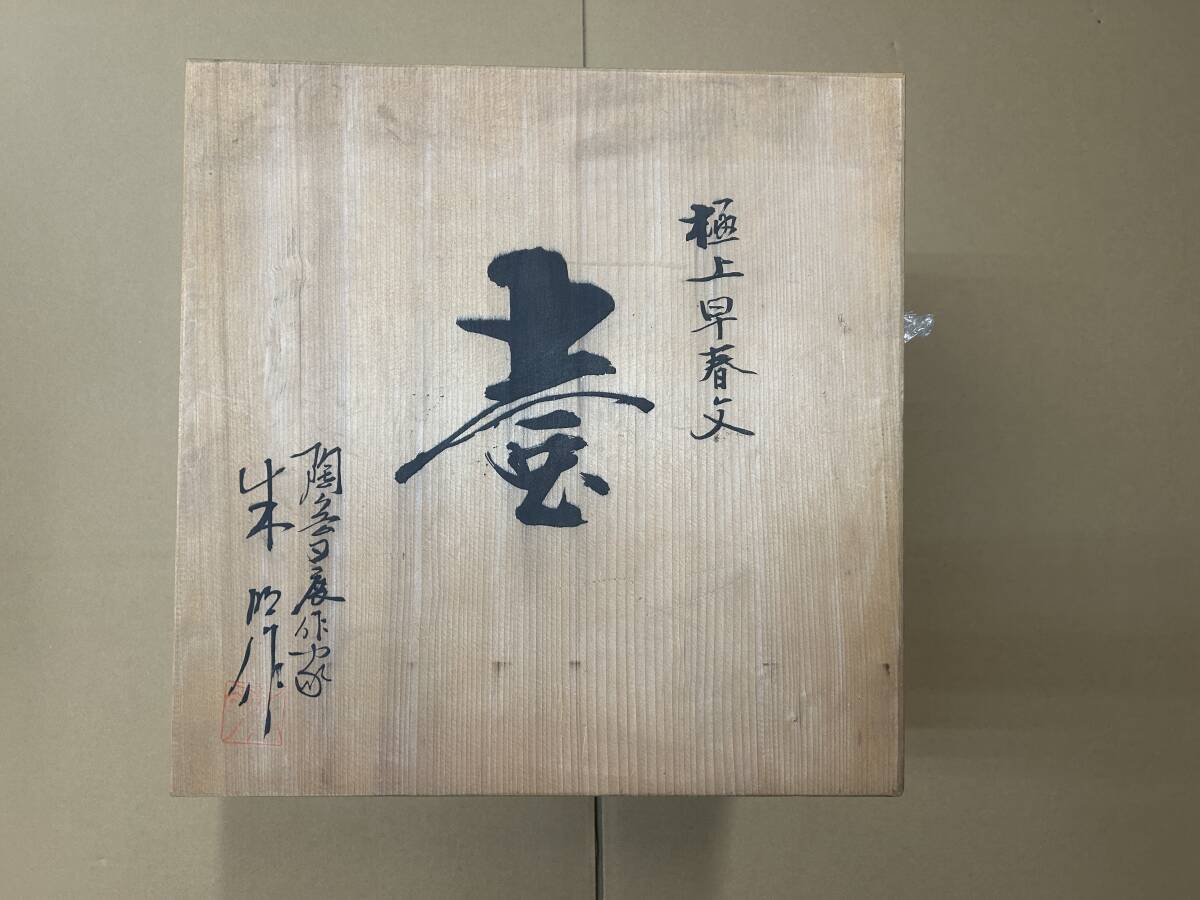 極上早春文
壷
陶芸日展作家
朱 作